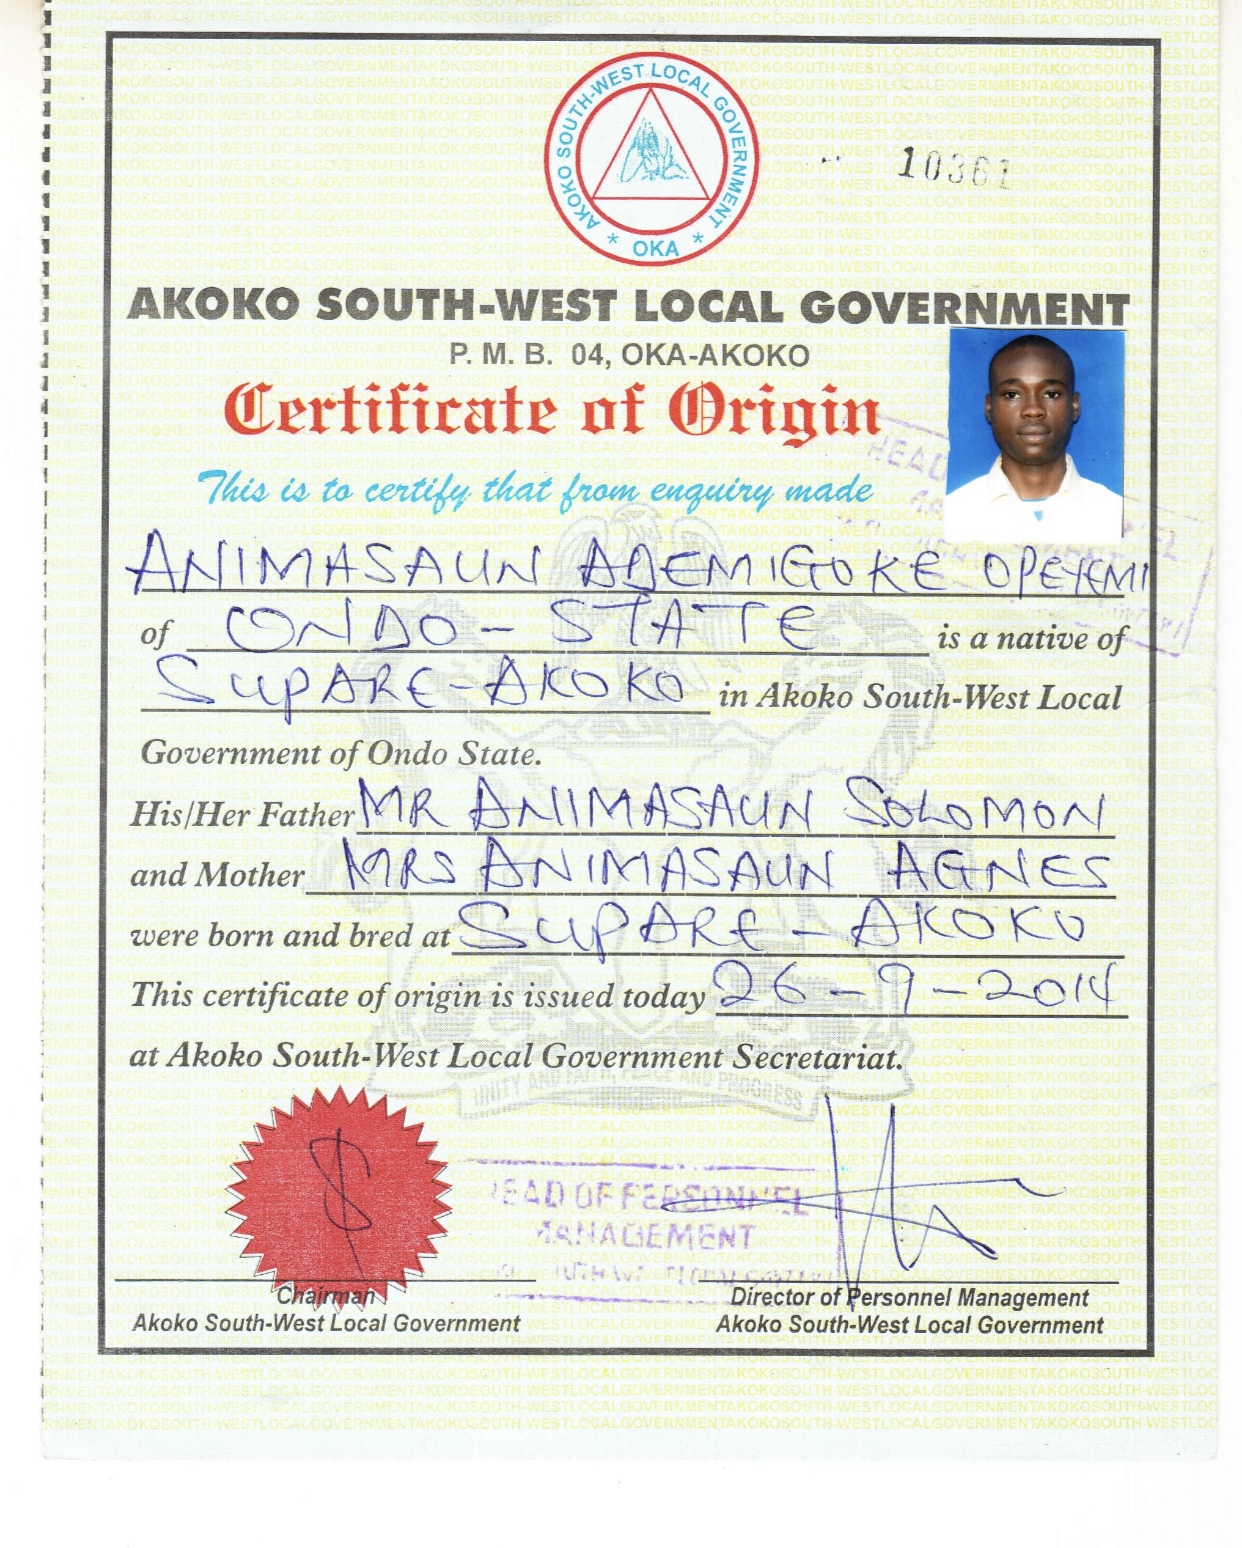 AKOKO SOUTH-WEST LOCAL GOVERNMENT
* OKA *
10361
AKOKO SOUTH-WEST LOCAL GOVERNMENT
P. M. B. 04, OKA-AKOKO
Certificate of Origin
This is to certify that from enquiry made
ANIMASAUN ADEMIGOKE OPEYEMI
of ONDO - STATE is a native of
SUPARE-AKOKO in Akoko South-West Local
Government of Ondo State.
His/Her Father MR ANIMASAUN SOLOMON
and Mother MRS ANIMASAUN AGNES
were born and bred at SUPARE - AKOKO
This certificate of origin is issued today 26-9-2014
at Akoko South-West Local Government Secretariat.
UNITY AND FAITH, PEACE AND PROGRESS
HEAD OF PERSONNEL
MANAGEMENT
Chairman
Akoko South-West Local Government
Director of Personnel Management
Akoko South-West Local Government